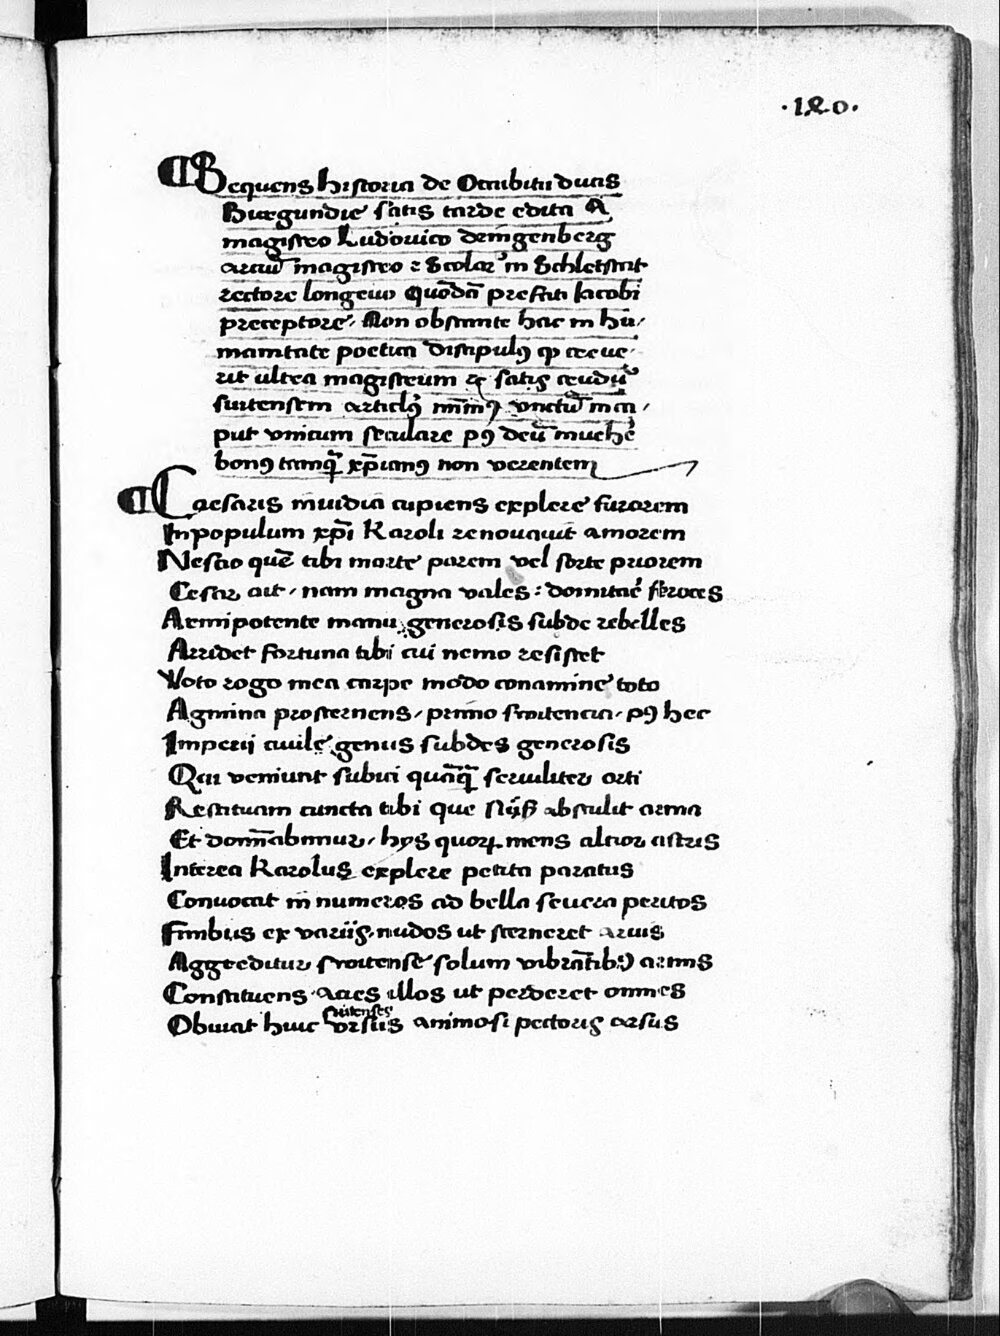 ·120·
Sequens historia de Occubitu ducis
Burgundie satis tarde edita A
magistro Ludovico dringenberg
arciū magistro ⁊ Scolar' in Schletstat
rectore longevo quōdā prefati Iacobi
preceptore, Non obstante hac in hu-
manitate poetica discipulꝰ
rit ultra magistrum satis
put unicum seculare pꝰ deū
bonꝰ tamq̄ xp̄ianꝰ non verentem
Caesaris invidia cupiens explere furorem
In populum xp̄i Karoli renovavit amorem
Nescio quē tibi morte parem vel sorte priorem
Cesar ait, nam magna vales : domitac' feroces
Armipotente manu generosis subde rebelles
Arridet fortuna tibi cui nemo resistet
Voto rogo mea carpe modo conamine toto
Agmina prosternens, primo switencia, pꝰ hec
Imperii civile genus subdes generosis
Qui veniunt subici quāq̄ serviliter orti
Restituam cuncta tibi que abstulit arma
Et domīabimur, hys quorꝝ mens altior astris
Interea Karolus explere petita paratus
Convocat in numeros ad bella severa peritos
Finibus ex variis nudos ut sterneret arvis
Aggreditur switense solum vibrātibꝰ armis
Constituens acies illos ut perderet omnes
switenses
Obviat huic ursus animosi pectoris arsus